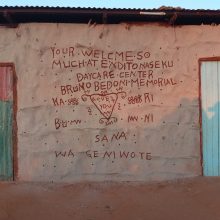 YOUR WELCME SO
MUCH AT ENDITONASEKU
DAYCARE CENTER
BRUNO BEDONI MEMORIAL
KA RI
BI NI
SANA
WAGENI WOTE